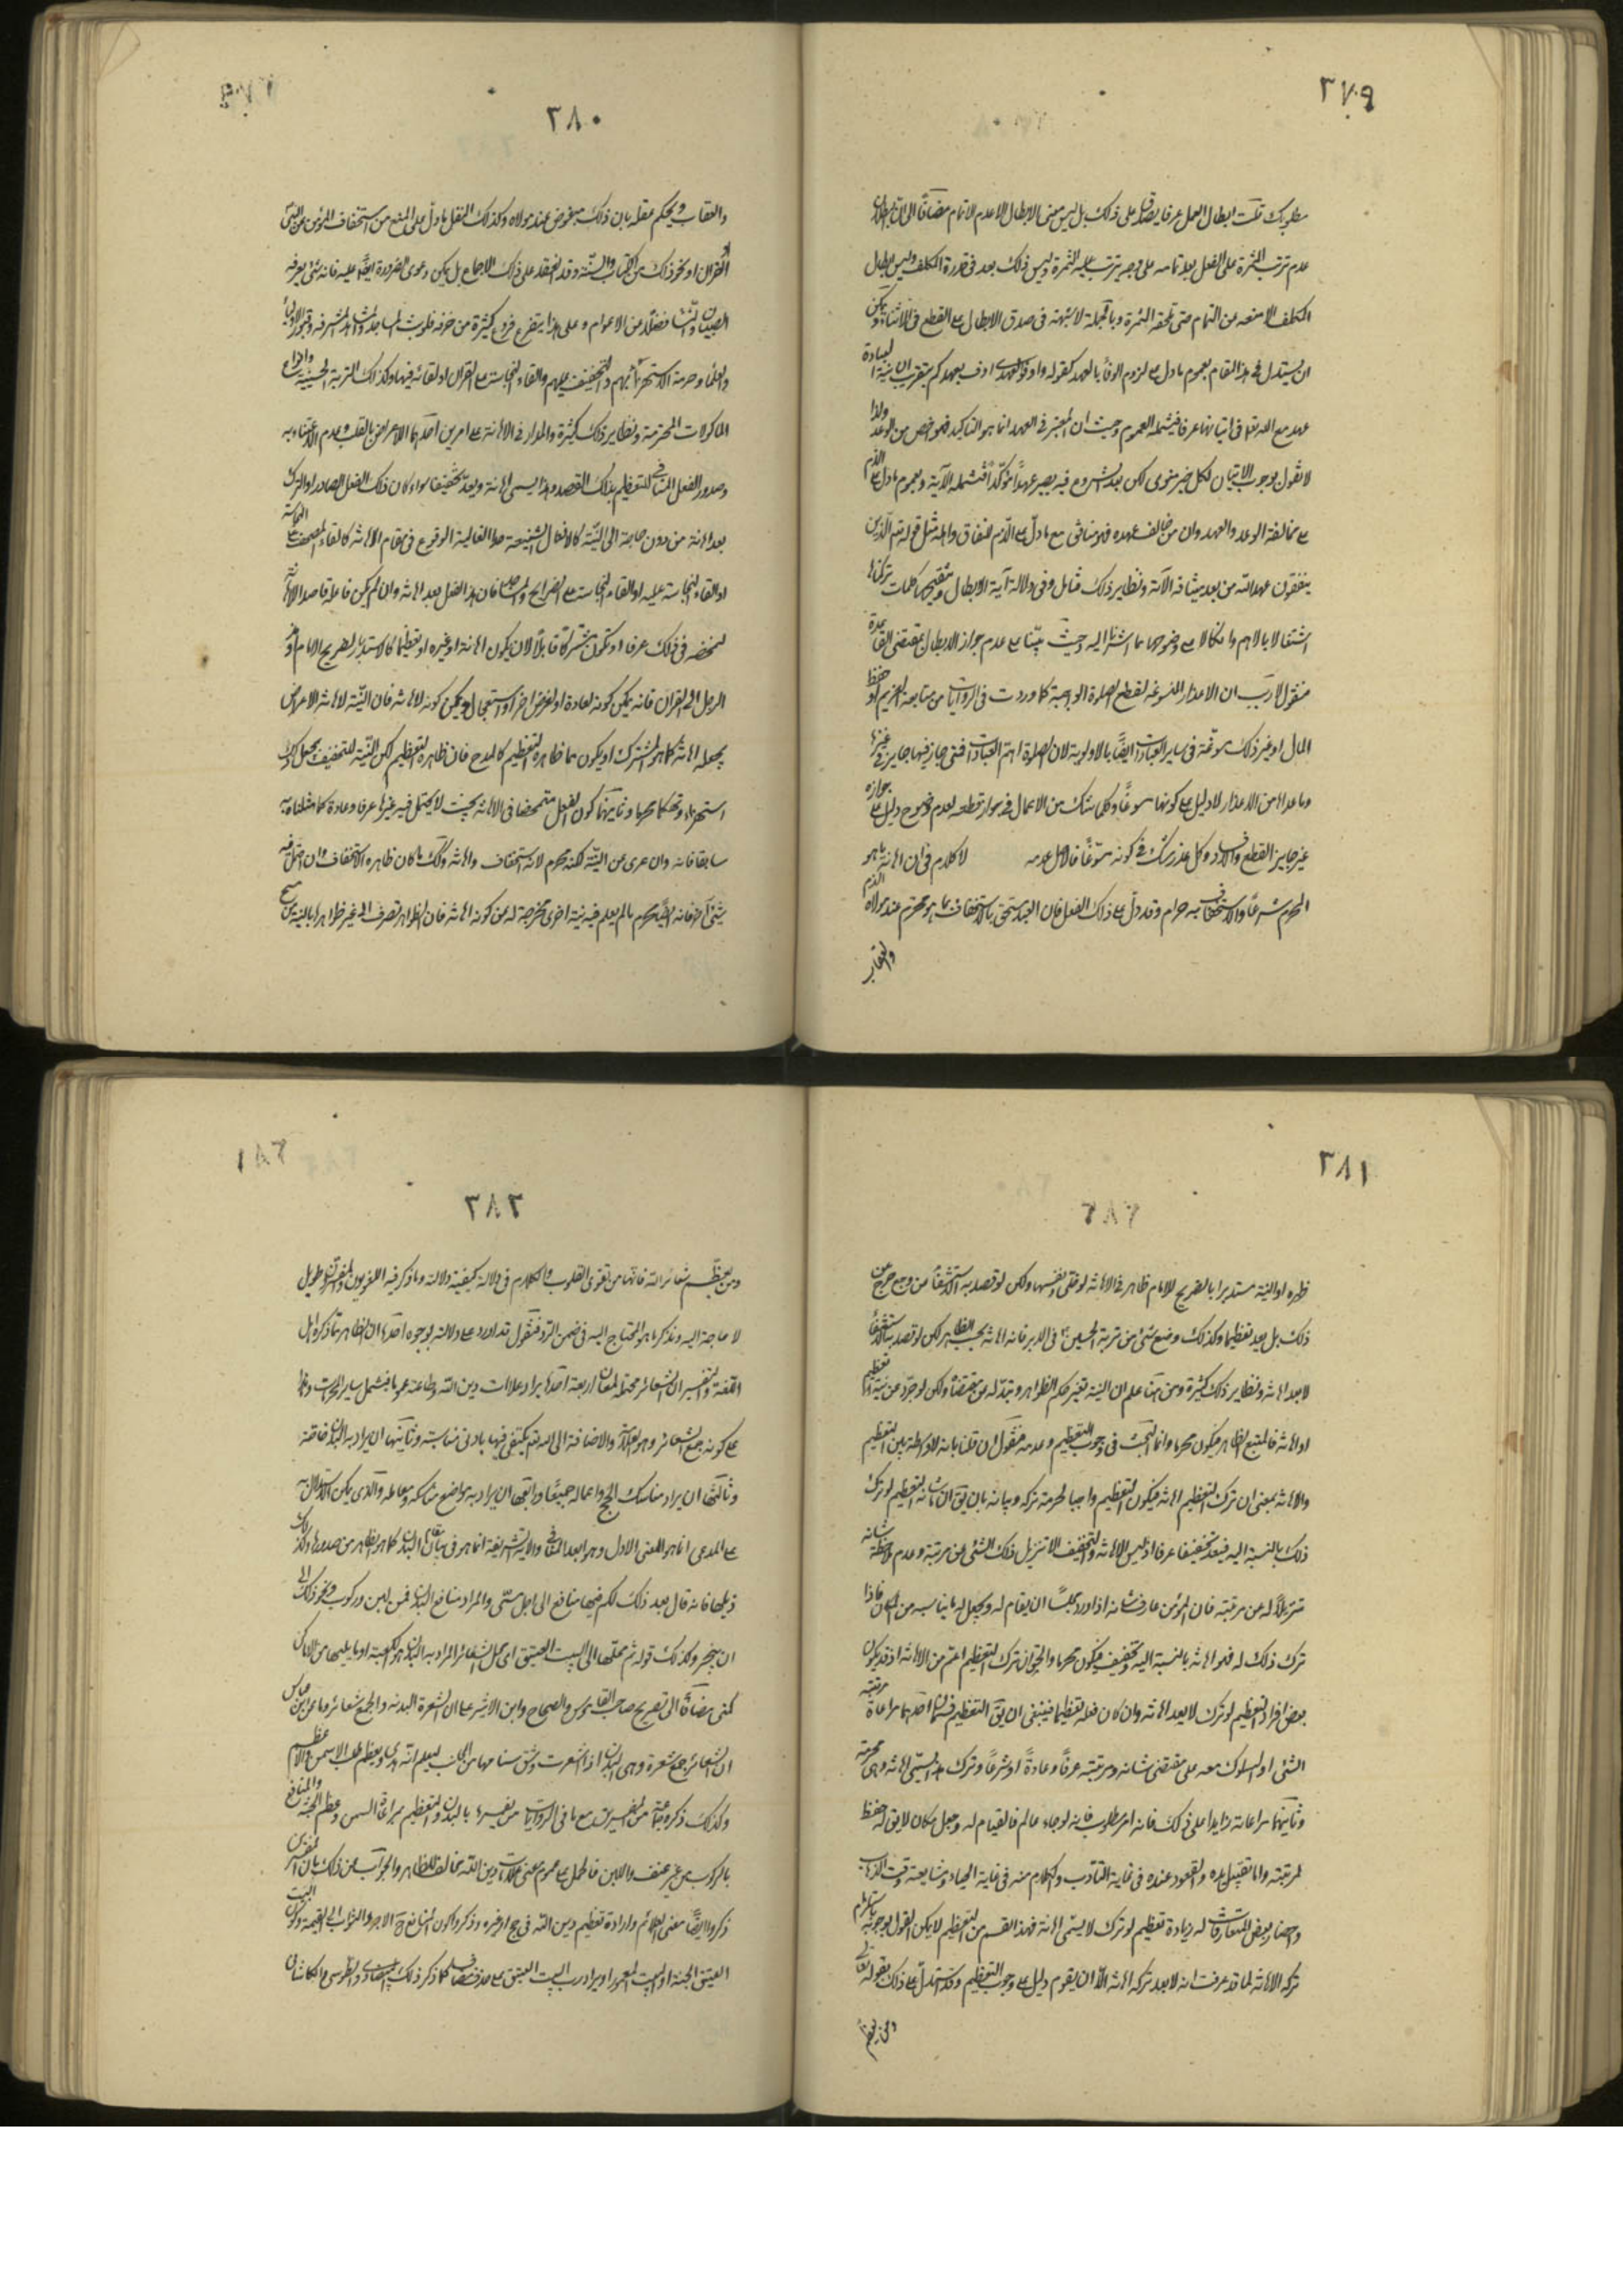 ٢٧٩
مطلوبك قلت ابطال العمل عرفا يصدق على ذلك بل ليس معنى الابطال الا عدم الاتمام مضافا الى ان
عدم ترتب الثمرة على الفعل بعد تمامه على وجه يترتب عليه الثمرة وليس ذلك بعد في قدرة المكلف وليس ابطال
المكلف الا منعه عن التمام حتى تلحقه الثمرة وبالجملة لا شبهة في صدق الابطال على القطع في الاثناء ويمكن
ان يستدل في هذا المقام بعموم ما دل على لزوم الوفاء بالعهد كقوله واوفوا بعهدي اوف بعهدكم بتقريب ان نية العبادة
عهد مع الله تعا في اتيانها عرفا فيشمله العموم وحيث ان المعتبر في العهد انما هو التاكيد فهو اخص من الوعد ولذا
لا نقول بوجوب الاتيان لكل خير منوى لكن بعد الشروع فيه يصير عهدا مؤكدا فتشمله الآية وبعموم ما دل على الذم
على مخالفة الوعد والعهد وان من خالف عهده فهو منافق مع ما دل على الذم للنفاق واهله مثل قوله تع الذين
ينقضون عهد الله من بعد ميثاقه الآية ونظاير ذلك فتامل وفي دلالة آية الابطال وتنقيحها كلمات تركناها
اشتغالا بالاهم واتكالا على وضوحها مما اشرنا اليه وحيث بيّنا على عدم جواز الابطال بمقتضى القاعدة
فنقول لا ريب ان الاعذار المسوغة لقطع الصلوة الواجبة كما وردت في الروايات من متابعة الغريم او حفظ
المال او غير ذلك مسوّغة في ساير العبادات ايضا بالاولوية لان الصلوة اهم العبادات فمتى جاز فيها جاز في غيرها
وما عداها من الاعذار لا دليل على كونها مسوغا وكلما شك من الاعمال في جواز قطعه لعدم وضوح دليل على جوازه
غير جايز القطع والافساد وكل عذر شك في كونه مسوّغا فالاصل عدمه لا كلام في ان اهانة ما هو
المحرم شرعا والاستخفاف به حرام وقد دل على ذلك العقل فان العبد يستحق بالاستخفاف بما هو محترم عند مولاه الذم
والعقاب
٢٨٠
والعقاب ويحكم عقله بان ذلك مبغوض عند مولاه وكذلك النقل ما دل على المنع من استخفاف المؤمن
القران او نحو ذلك من الكتاب والسنة وقد انعقد على ذلك الاجماع بل يمكن دعوى الضرورة ايضا عليه فانه شئ يعرفه
الصبيان والنساء فضلا عن الاعوام وعلى هذا يتفرع فروع كثيرة من حرمة تلويث المساجد والمشاهد المشرفة وقبور الاولياء
والعلماء وحرمة الاستهزاء بهم والتخفيف عليهم والقاء النجاسات على القران او القائه فيها وكذلك التربة الحسينية
الماكولات المحترمة ونظاير ذلك كثيرة والمدار في الاهانة على امرين احدهما الاعراض بالقلب وعدم الاعتناء به
وصدور الفعل المنافي للتعظيم بذلك القصد وهذا يسمى اهانة ويعد تخفيفا سواء كان ذلك الفعل الصادر او الترك
يعد اهانة من دون حاجة الى النية كالافعال الشنيعة الغالبة الوقوع في مقام الاهانة كالقاء المصحف على النجاسة
او القاء النجاسة عليه او القاء النجاسة على الضرايح والمساجد فان هذا الفعل يعد اهانة وان لم يكن فاعله قاصدا الاهانة
لتمحضه في ذلك عرفا او تكون مشتركا قابلا لان يكون اهانة او غيره او تعظيما كالاستدبار لضريح الامام او مد
الرجل الى القران فانه يمكن كونه لعادة او لغرض اخر او استعجال ويمكن كونه لاهانة فان النية لاهانة الاعراض
يجعله اهانة كما هو المشترك او يكون مما ظاهره التعظيم كالمدح فان ظاهره التعظيم لكن النية للتخفيف يجعل ذلك
استهزاء وتهكما محرما وثانيهما كون الفعل متمحضا في الاهانة بحيث لا يحتمل فيه غيرها عرفا وعادة كما مثلنا به
سابقا فانه وان عرى عن النية لكنه محرم لانه استخفاف واهانة وكذلك ما كان ظاهره الاستخفاف وان احتمل فيه
شئ آخر فانه ايضا محرم ما لم يعلم فيه نية اخرى مخرجة له من كونه اهانة فان الظواهر تصرف الى غير ظواهرها بالنية
٢٨١
ظهره او الية مستدبرا بالضريح للامام ظاهر في الاهانة لو خلى ونفسها ولكن لو قصد به الاستشفاء من وجع خرج عن
ذلك بل يعد تعظيما وكذلك وضع شئ من تربة الحسين ع في الدبر فانه اهانة بحسب الظاهر لكن لو قصد به الاستشفاء
لا يعد اهانة ونظاير ذلك كثيرة ومن هنا علم ان النية تغير حكم الظواهر وتبدله عن مقتضاها ولكن لو جرد عن نية التعظيم
او اهانة فالمتبع الظاهر فيكون محرما وانما البحث في وجوب التعظيم وعدمه فنقول ان قلنا بانه لا واسطة بين التعظيم
والاهانة بمعنى ان ترك التعظيم اهانة فيكون التعظيم واجبا لحرمة تركه وبيانه بان يق ان ما شانه التعظيم لو ترك
ذلك بالنسبة اليه فيعد تخفيفا عرفا اذ ليس الاهانة والتخفيف الا تنزيل ذلك الشئ عن مرتبة وعدم ملاحظة شانه
تنزيلا له عن مرتبته فان المؤمن عارف شانه اذا ورد مجلسا ان يقام له ويجعل له ما يناسبه من المكان فاذا
ترك ذلك له فهو اهانة بالنسبة اليه وتخفيف فيكون محرما والحق ان ترك التعظيم اعم من الاهانة اذ قد يكون
بعض افراد التعظيم لو ترك لا يعد اهانة وان كان فعله تعظيما فينبغي ان يق التعظيم قسمان احدهما مراعاة مرتبة
الشئ او السلوك معه على مقتضى شانه ومرتبته عرفا وعادة او شرعا وترك هذا يسمى اهانة وهي محرمة
وثانيهما مراعاته زايدا على ذلك فانه امر مطلوب فانه لو جاء عالم فالقيام له وجعل مكان لايق له حفظ
لمرتبته واما تقبيل يده والقعود عنده في غاية التأدب والكلام منه في غاية الحياء ومشايعته وقت الذهاب
واحضار بعض المتعارفات له زيادة تعظيم لو ترك لا يسمى اهانة فهذا القسم من التعظيم لا يمكن القول بوجوبه باستلزام
تركه الاهانة لما قد عرفت انه لا يعد تركه اهانة الا ان يقوم دليل على وجوب التعظيم وقد استدل على ذلك بقوله تعالى
ومن يعظم
٢٨٢
ومن يعظم شعائر الله فانها من تقوى القلوب والكلام في دلالة كيفية دلالته وما ذكر فيه اللغويون والمفسرون طويل
لا حاجة اليه ونذكر ما هو المحتاج اليه في ضمن الرد فنقول قد اورد على دلالته بوجوه احدها ان الظاهر مما ذكره اهل
اللغة والتفسير ان الشعائر محتملة لمعان اربعة احدها يراد علامات دين الله وطاعته عموما فيشمل ساير المحرمات
على كونه جمع الشعائر وهو العلامة والاضافة الى الله تع يكتفى فيها بادنى مناسبة وثانيها ان يراد به البدن خاصة
وثالثها ان يراد مناسك الحج واعماله جميعا ورابعها ان يراد به مواضع مناسكه ومعالمه والذي يمكن الاستدلال به
على المدعى انما هو المعنى الاول وهو ابعد المعاني والآية الشريفة انما هو في بيان البدن كما هو الظاهر من صدرها وكذلك
ذيلها فانه قال بعد ذلك لكم فيها منافع الى اجل مسمى والمراد منافع البدن من لبن وركوب ونحو ذلك الى
ان ينحر وكذلك قوله ثم محلها الى البيت العتيق اي محل الشعائر المراد به البدن هو الكعبة او ما يليها من الاماكن
كمنى مضافا الى تصريح صاحب القاموس والصحاح وابن الاثير على ان الشعيرة البدنة والجمع شعائر وما عن ابن عباس
ان الشعائر جمع شعيرة وهي البدن اذا اشعرت وشق سنامها من الجانب ليعلم انه هدى وتعظيم طلب الاسمن والاعظم
وكذلك ذكره جماعة من المفسرين مع ما في الروايات من تفسيرها بالبدن والتعظيم بمراعاة السمن وعظم الجثة والمنافع
بالركوب من غير عنف واللبن فالحمل على عموم معنى علامات دين الله مخالف للظاهر والجواب عن ذلك بان المفسرين
ذكروا ايضا معنى العلائم وارادة تعظيم دين الله في حج او غيره وذكروا كون المنافع ح الاجر والثواب الى القيمة وكون البيت
العتيق الجنة او البيت المعمور او يراد رب البيت العتيق على حذف مضاف كما ذكر ذلك البيضاوي والطبرسي والكاشاني